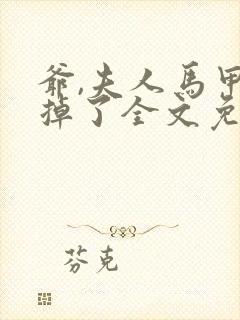 爷,夫人馬甲
掉了全文免
芬克